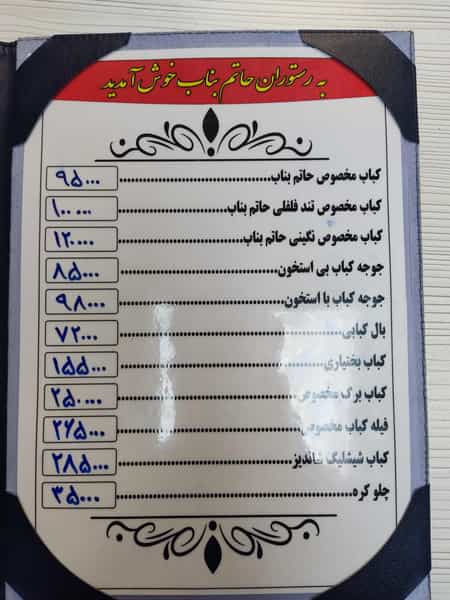 به رستوران حاتم بناب خوش آمدید
کباب مخصوص حاتم بناب ۹۵۰۰۰
کباب مخصوص تند فلفلی حاتم بناب ۱۰۰۰۰۰
کباب مخصوص نگینی حاتم بناب ۱۲۰۰۰۰
جوجه کباب بی استخون ۸۵۰۰۰
جوجه کباب با استخون ۹۸۰۰۰
بال کبابی ۷۲۰۰۰
کباب بختیاری ۱۵۵۰۰۰
کباب برگ مخصوص ۲۵۰۰۰۰
فیله کباب مخصوص ۲۶۵۰۰۰
کباب شیشلیگ شاندیز ۲۸۵۰۰۰
چلو کره ۳۵۰۰۰